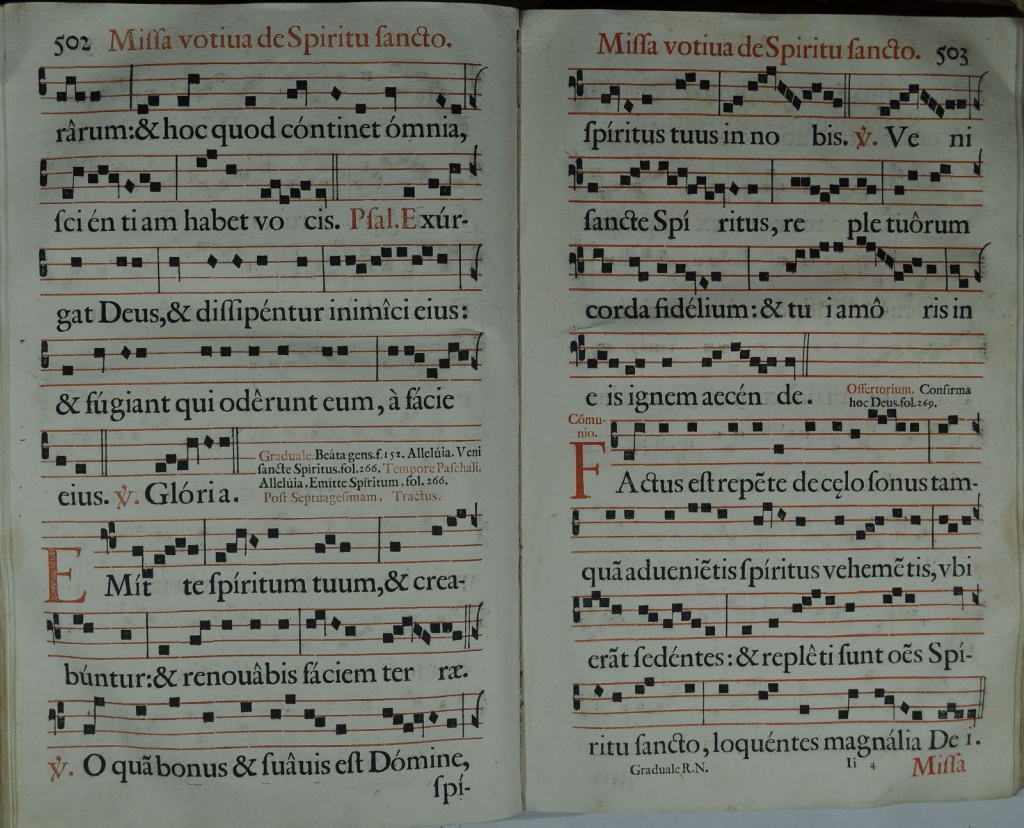 502 Miſſa votiua de Spiritu ſancto.
rârum:& hoc quod cóntinet ómnia,
ſci én ti am habet vo cis. Pſal. Exúr-
gat Deus,& diſſipéntur inimîci eius:
& fúgiant qui odêrunt eum, à fácie
eius. ℣. Glória.
Graduale. Beáta gens.f.152. Allelúia. Veni
ſancte Spiritus.fol.266. Tempore Paſchali.
Allelúia. Emítte Spíritum. fol. 266.
Poſt Septuageſimam. Tractus.
EMít te ſpíritum tuum,& crea-
búntur:& renouâbis fáciem ter ræ.
℣. O quã bonus & ſuâuis eſt Dómine,
ſpí-
Miſſa votiua de Spiritu ſancto. 503
ſpíritus tuus in no bis. ℣. Ve ni
ſancte Spí ritus, re ple tuôrum
corda fidélium: & tu i amô ris in
e is ignem accén de.
Offertorium. Confirma
hoc Deus.fol.269.
Cómu-
nio.
FActus eſt repẽte de cęlo ſonus tam-
quã adueniẽtis ſpíritus vehemẽtis, vbi
erãt ſedéntes: & replêti ſunt oẽs Spí-
ritu ſancto, loquéntes magnália De i.
Graduale R.N. Ii 4 Miſſa